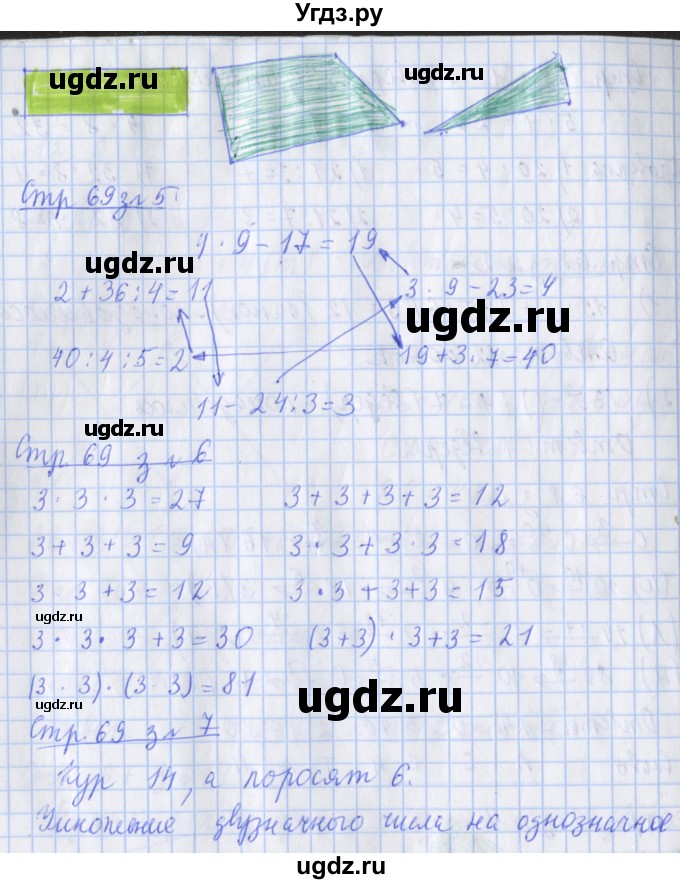 Угдз.ру
ugdz.ru
ugdz.ru
Стр 69 з № 5
4 · 9 - 17 = 19
ugdz.ru
2 + 36 : 4 = 11
3 · 9 - 23 = 4
ugdz.ru
40 : 4 : 5 = 2
19 + 3 · 7 = 40
11 - 24 : 3 = 3
ugdz.ru
Стр. 69 з № 6
3 · 3 · 3 = 27
3 + 3 + 3 + 3 = 12
3 + 3 + 3 = 9
3 · 3 + 3 · 3 = 18
3 · 3 + 3 = 12
3 · 3 + 3 + 3 = 15
ugdz.ru
3 · 3 · 3 + 3 = 30
(3 + 3) · 3 + 3 = 21
(3 · 3) · (3 · 3) = 81
ugdz.ru
ugdz.ru
Стр. 69 з № 7
Кур 14, а поросят 6.
Умножение двузначного числа на однозначное
ugdz.ru